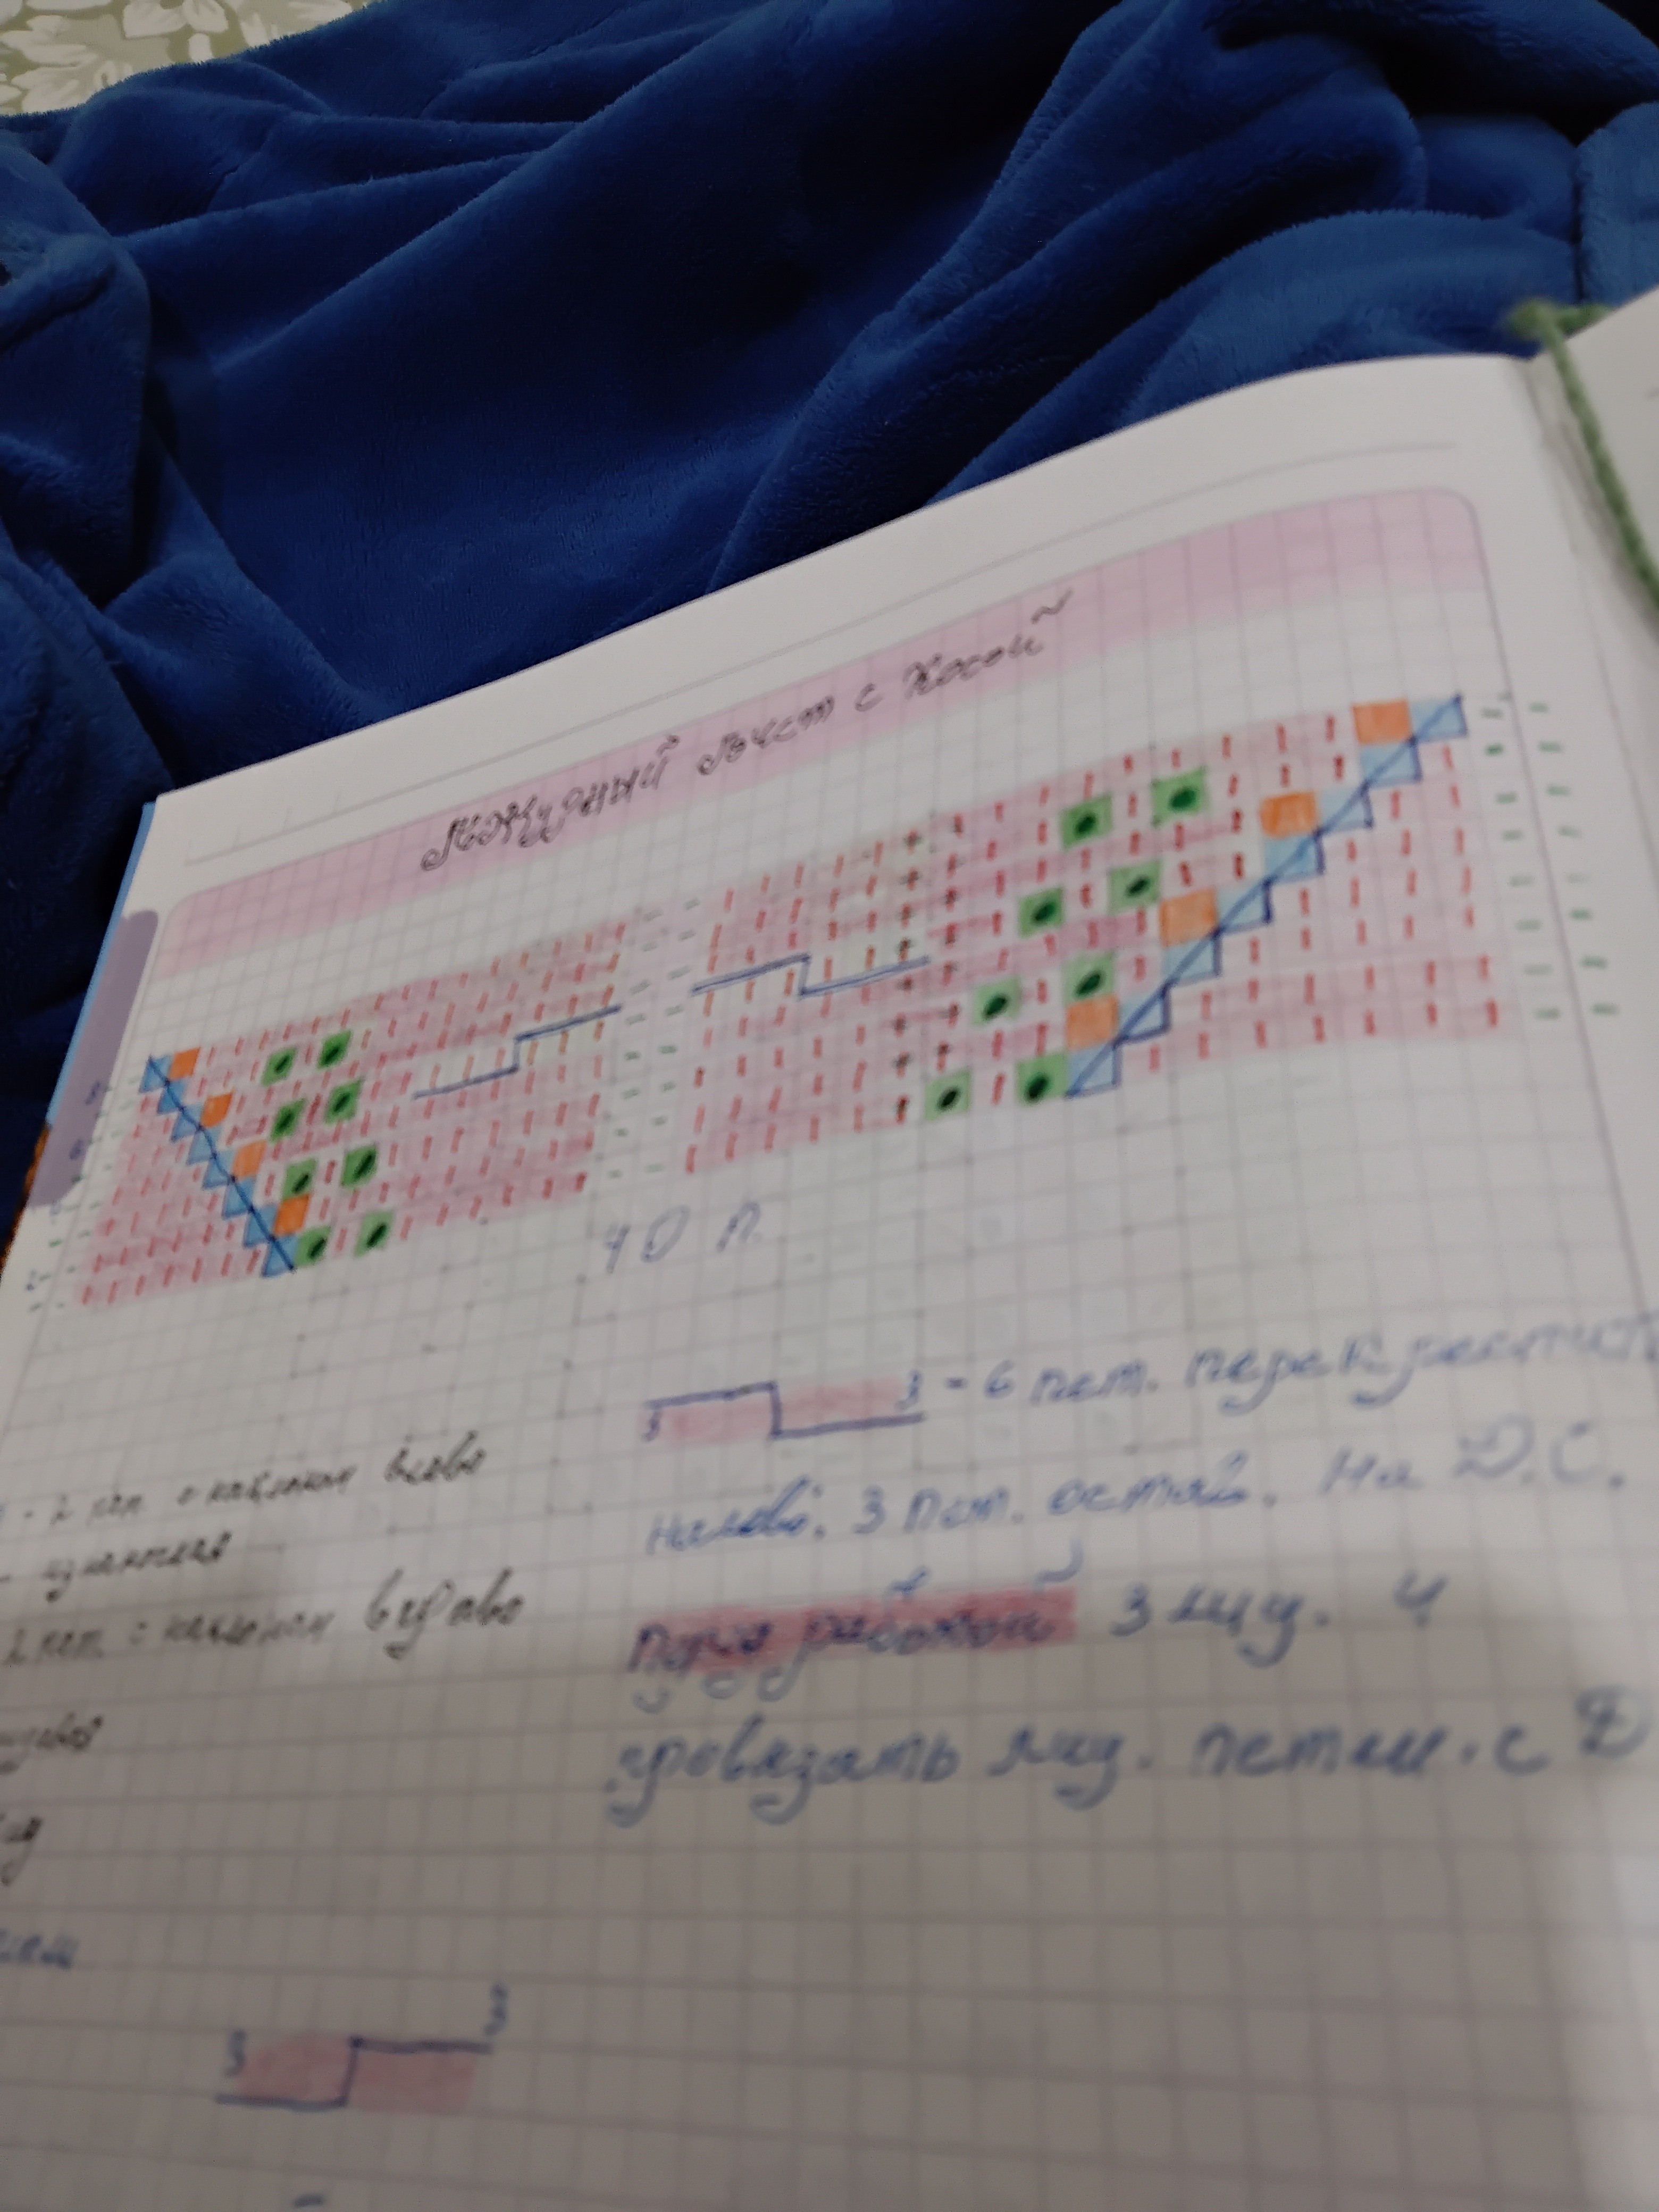 Ажурный лист с косой
40 п.
3 3 - 6 пет. перекрестить
2 пет. с наклоном влево
налево: 3 пет. остав. на D.C.
- изнаночная
перед работой 3 лиц. и
2 пет. с наклоном вправо
провязать лиц. петли. с D
3 3